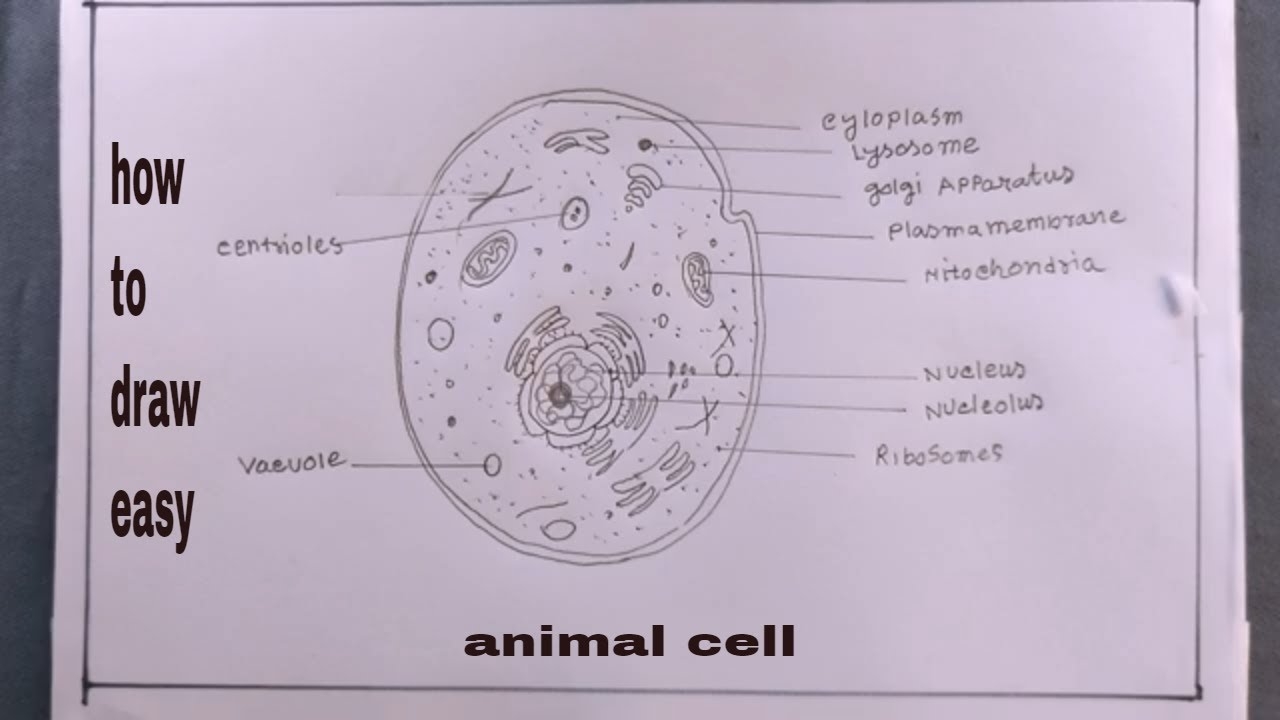 how
to
draw
easy
centrioles
vacuole
cyloplasm
Lysosome
golgi APParatus
Plasmamembrane
Mitochondria
Nucleus
Nucleolus
RiboSomes
animal cell